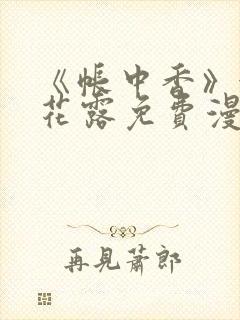 《帐中香》
花露免費漫
再見蕭郎